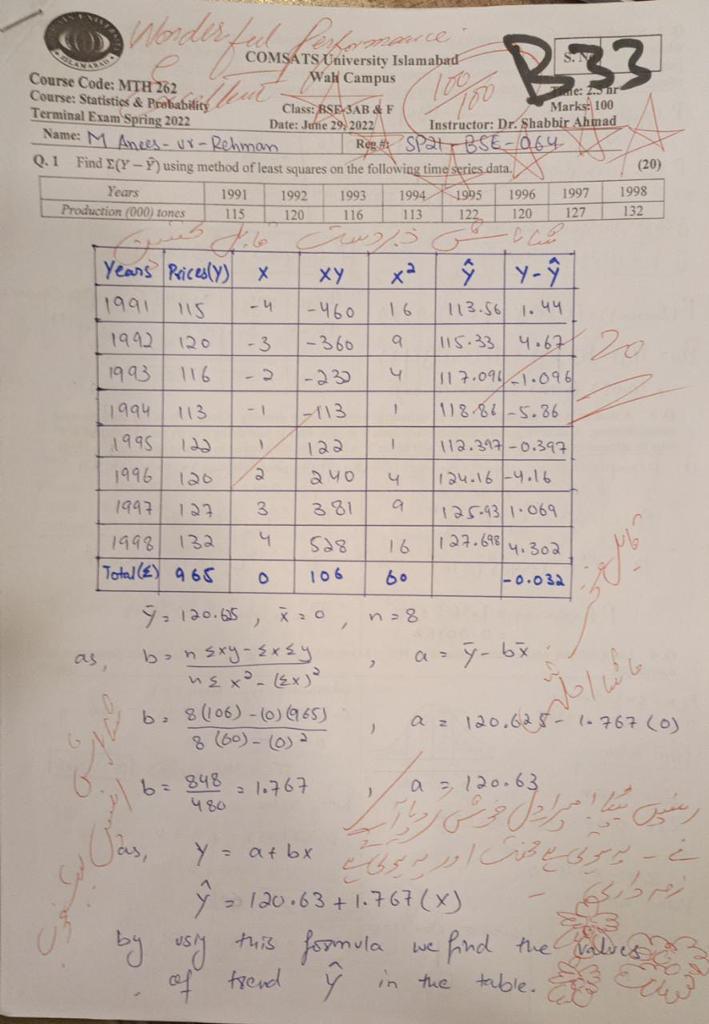 Wonderful Performance
Excellent
COMSATS University Islamabad
Wah Campus
100/100
B33
S. N
Course Code: MTH 262
Course: Statistics & Probability
Class: BSE-3AB & F
Time: 2.5 hr
Marks: 100
Terminal Exam Spring 2022
Date: June 29, 2022
Instructor: Dr. Shabbir Ahmad
Name: M Anees-ur-Rehman
Reg.#: SP21-BSE-064
Q. 1 Find Σ(Y – Ŷ) using method of least squares on the following time series data. (20)
Years 1991 1992 1993 1994 1995 1996 1997 1998
Production (000) tones 115 120 116 113 122 120 127 132
زبردست
Years Prices(Y) X XY X² Ŷ Y-Ŷ
1991 115 -4 -460 16 113.56 1.44
1992 120 -3 -360 9 115.33 4.67
20
1993 116 -2 -232 4 117.096 -1.096
1994 113 -1 -113 1 118.86 -5.86
1995 122 1 122 1 112.397 -0.397
1996 120 2 240 4 124.16 -4.16
1997 127 3 381 9 125.93 1.069
1998 132 4 528 16 127.698 4.302
Total(Σ) 965 0 106 60 -0.032
ȳ = 120.625 , x̄ = 0 , n = 8
as, b = nΣxy - ΣxΣy / nΣx² - (Σx)² , a = ȳ - bx̄
ماشااللہ
b = 8(106) - (0)(965) / 8(60) - (0)² , a = 120.625 - 1.767(0)
b = 848/480 = 1.767 , a = 120.63
as, Y = a + bx
Ŷ = 120.63 + 1.767(X)
by usig this formula we find the values
of trend Ŷ in the table.